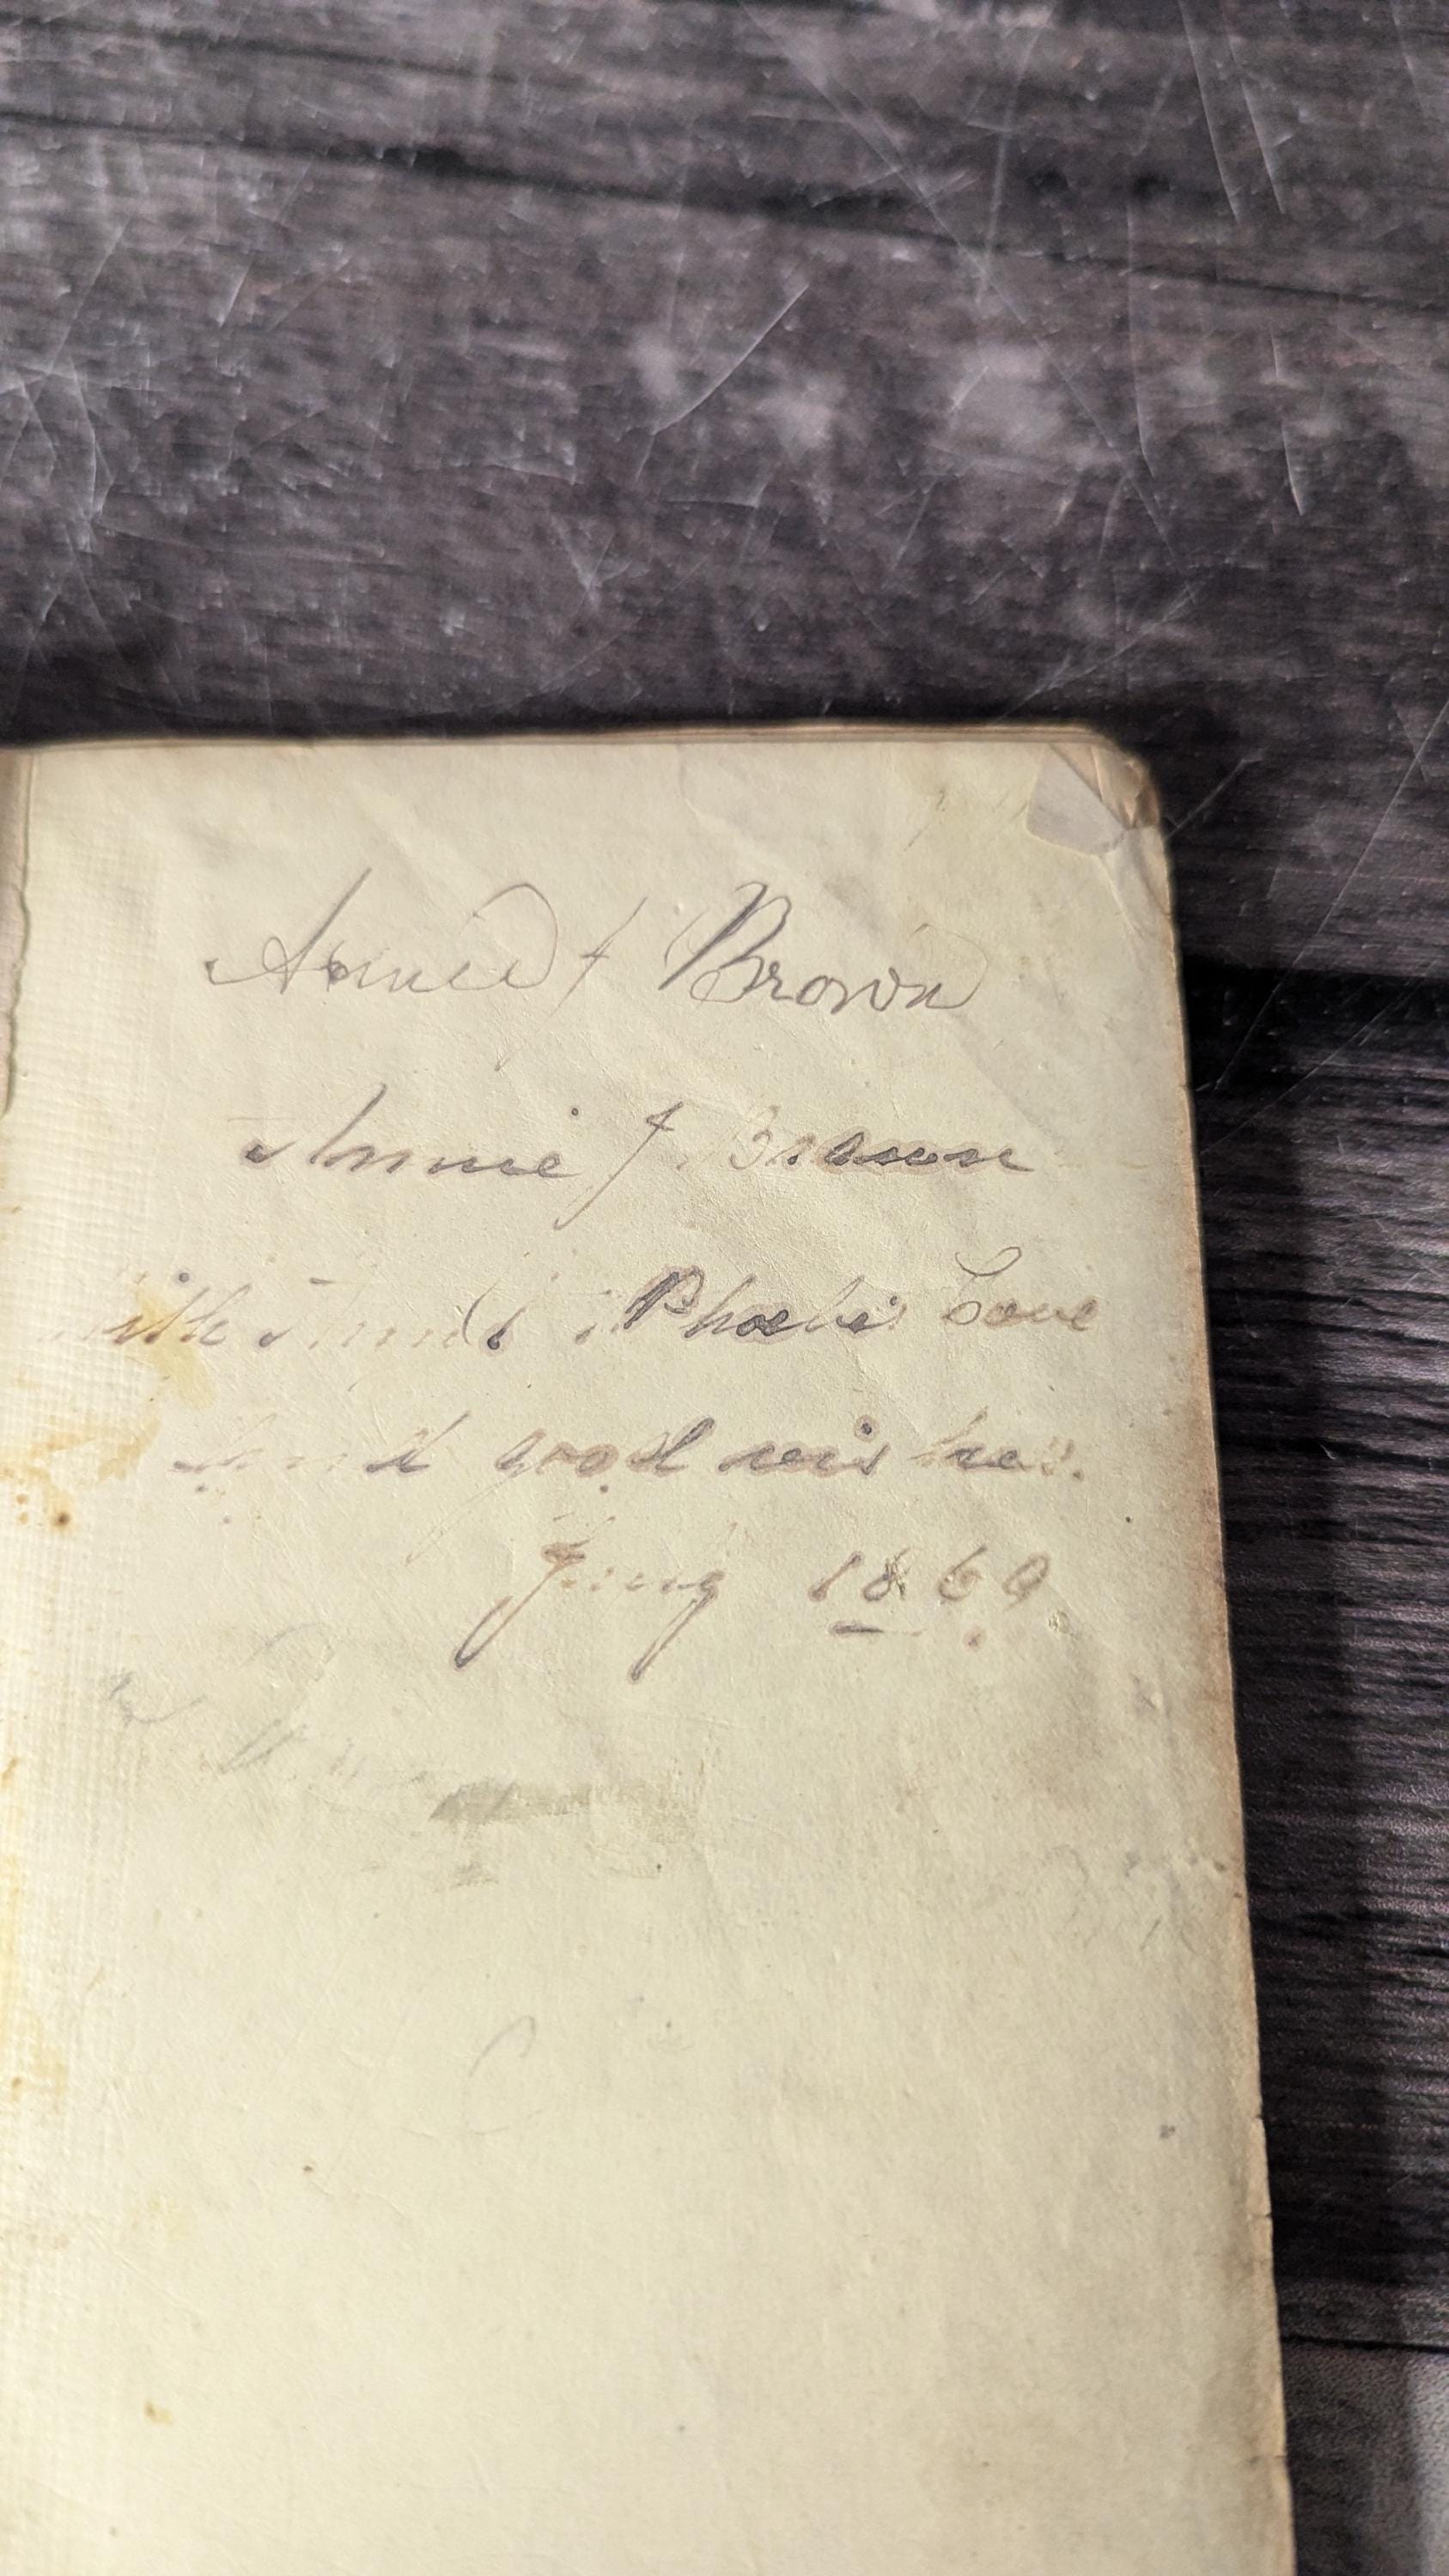 Annie J Brown
Annie J. Brown
with Aunt Phoebe's Love
and good wishes.
1869